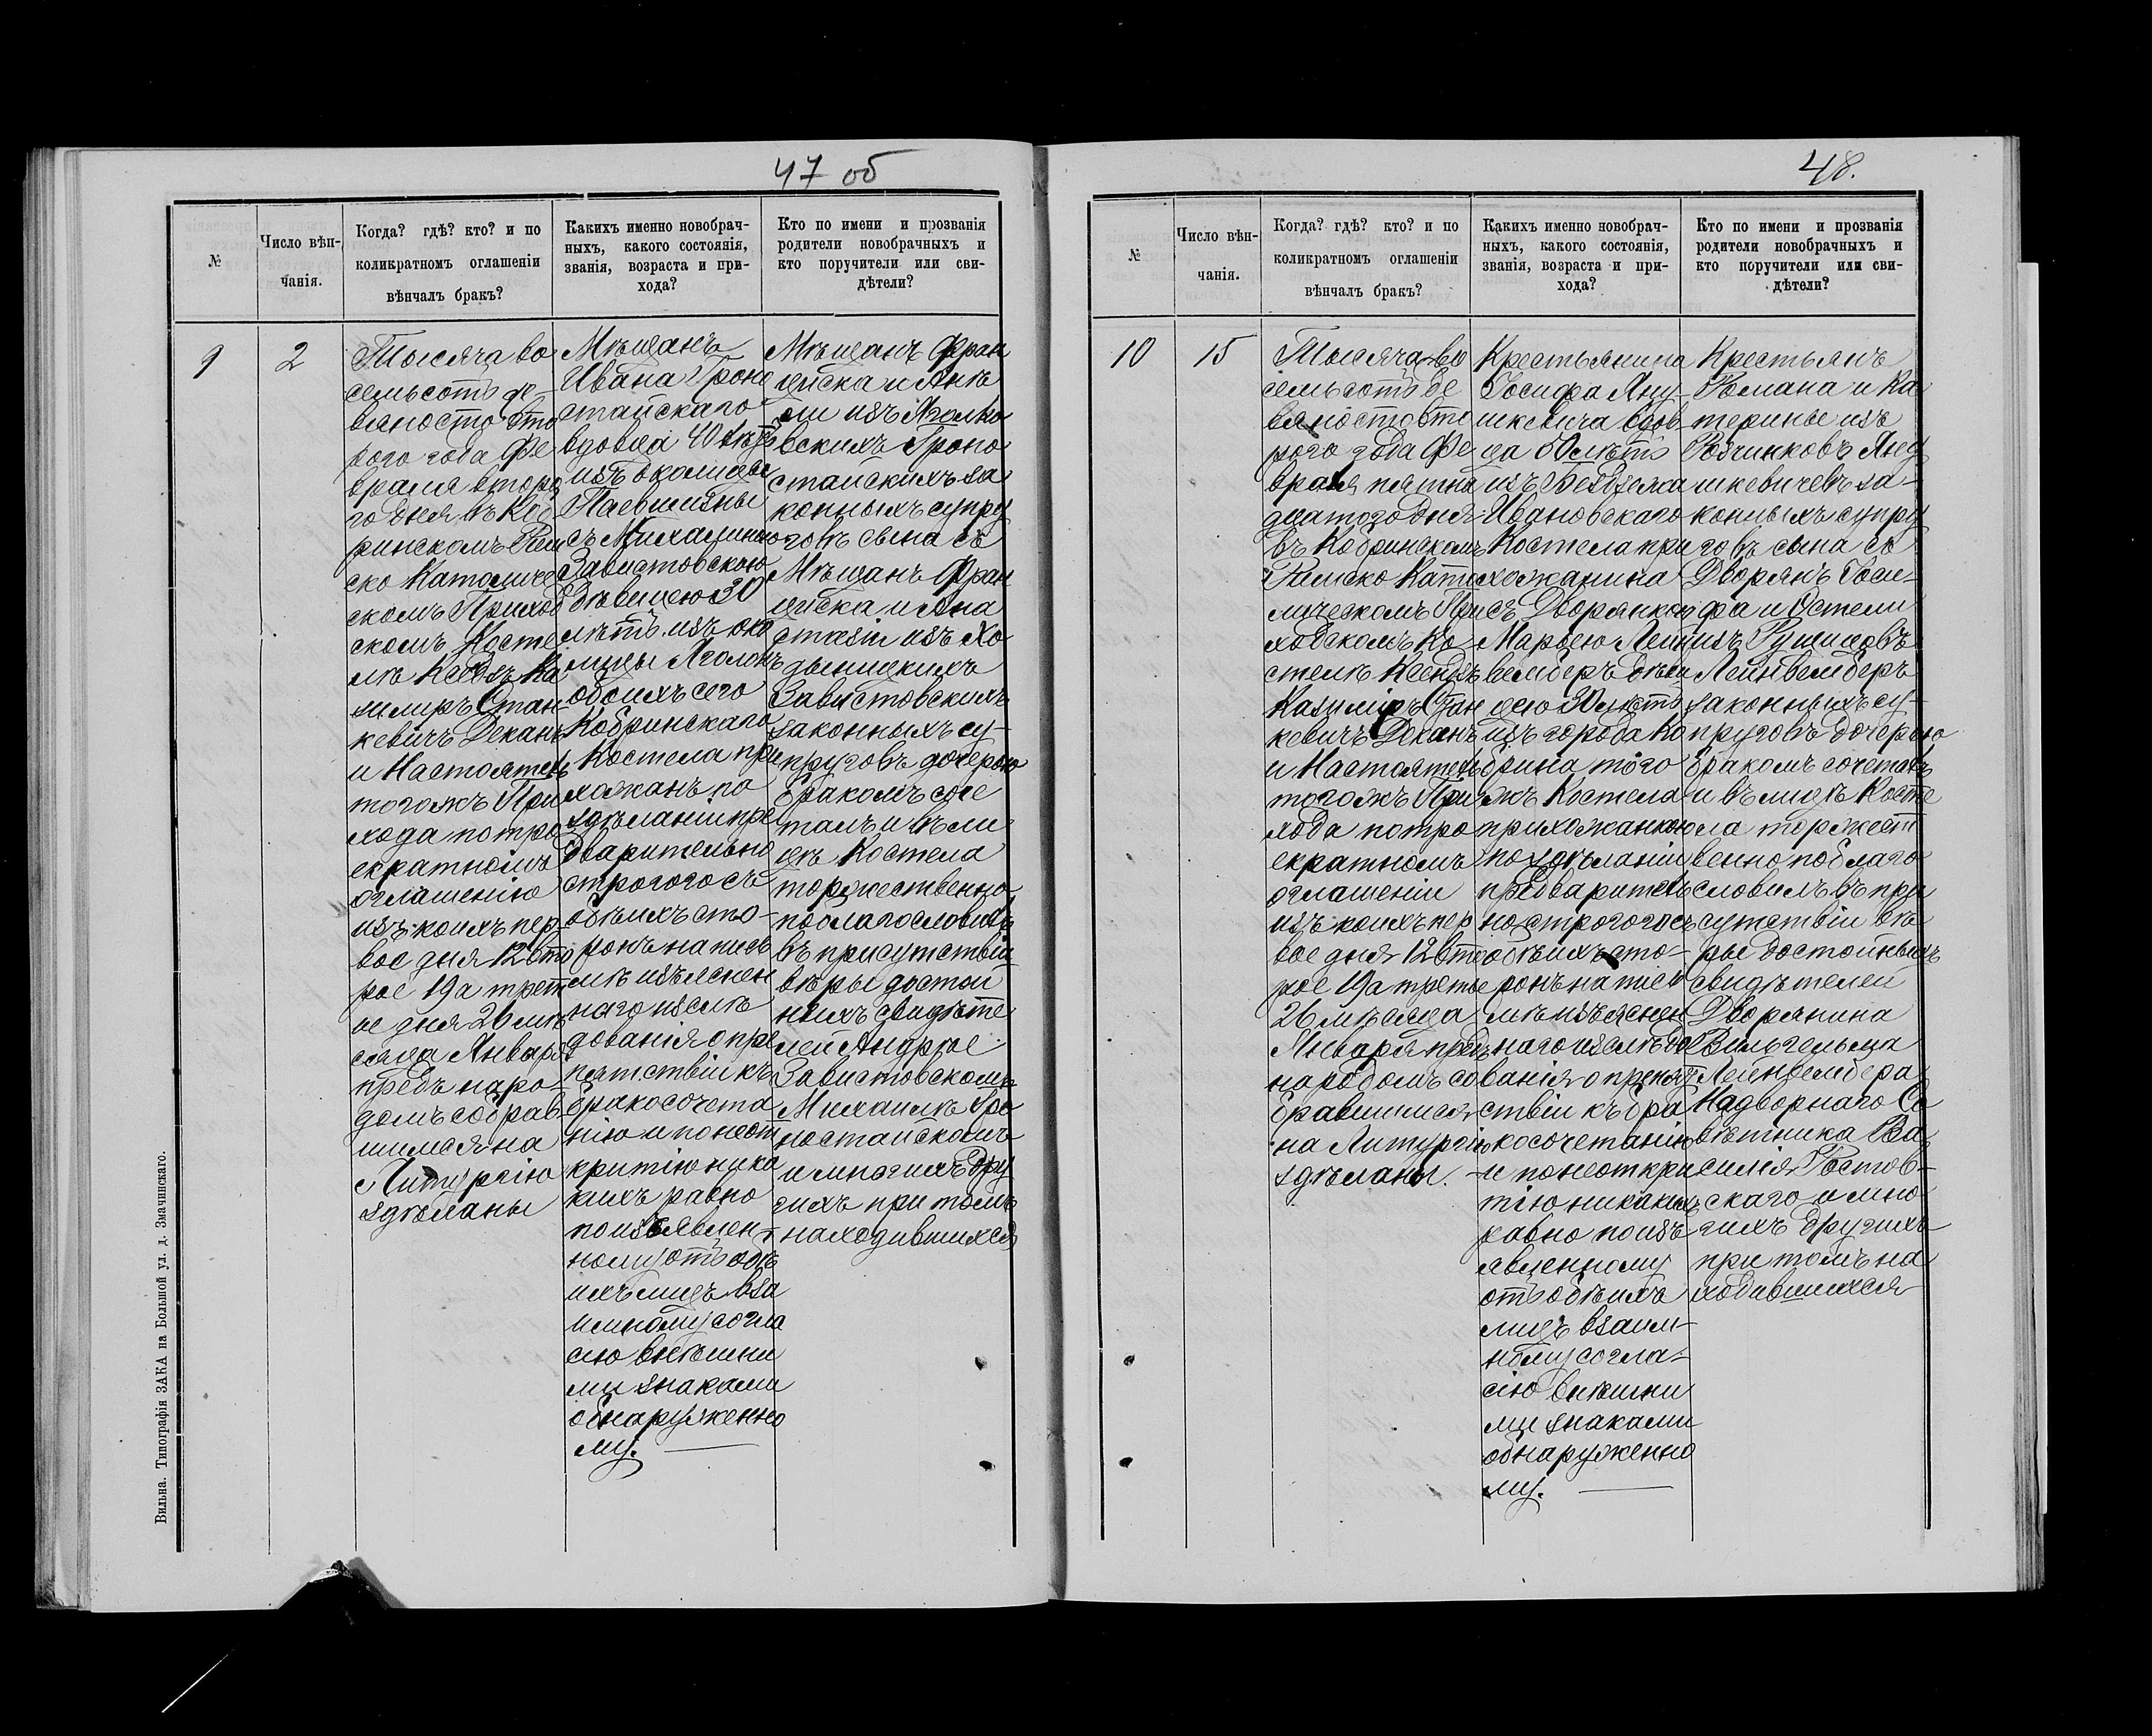 47 об
№
Число вѣн-
чанія.
Когда? гдѣ? кто? и по
коликратномъ оглашеніи
вѣнчалъ бракъ?
Какихъ именно новобрач-
ныхъ, какого состоянія,
званія, возраста и при-
хода?
Кто по имени и прозванія
родители новобрачныхъ и
кто поручители или сви-
дѣтели?
9
2
Тысяча во
семьсотъ де-
вяносто вто
рого года Фе
враля второ
го дня въ Коб
ринскомъ Рим
ско Католиче
скомъ Приход
скомъ Косте
лѣ Ксёндзъ Ка
зимиръ Стан-
кевичъ Деканъ
и Настоятель
тогожъ При
хода по тро
екратномъ
оглашенію
изъ коихъ пер-
вое дня 12 вто
рое 19 а трет
ье дня 26 мѣ
сяца Января
предъ наро-
домъ собрав
шимся на
Литургію
здѣланы
Мѣщанъ
Ивана Гроно
стайскаго
вдовца 40 лѣтъ
изъ околицы
съ Михалиною
Завистовскою
дѣвицею 30
лѣтъ изъ око
лицы Яголокъ
обоихъ сего
Кобринскаго
Костела при
хожанъ по
здѣланіи пре
дварительно
строгого съ
обѣихъ сто-
ронъ на пись
мѣ изъяснен
наго изслѣ
дованія о пре
пятствіи къ
бракосочета
нію и по неот
критію ника
кихъ равно
по изъявлен-
ному отъ обѣ
ихъ лицъ вза
имному согла
сію внѣшни
ми знаками
обнаруженно
му.
Мѣщанъ Фран
цишка и Анѣ
ли изъ Яголко
вскихъ Гроно
стайскихъ за
конныхъ супру
говъ сына съ
Мѣщанъ Фран
цишка и Ана
стазіи изъ Хо
дыницкихъ
Завистовскихъ
законныхъ су-
пруговъ дочерью
бракомъ соче
талъ и въ ли
цѣ Костела
торжественно
поблагословилъ
въ присутствіи
вѣры достой
ныхъ свидѣте
лей Андрѣе
Завистовскомъ
Михаилѣ Гро
ностайскомъ
и многихъ дру
гихъ при томъ
находившихся
Вильна. Типографія ЗАКА на Большой ул. д. Змачинскаго.
48.
№
Число вѣн-
чанія.
Когда? гдѣ? кто? и по
коликратномъ оглашеніи
вѣнчалъ бракъ?
Какихъ именно новобрач-
ныхъ, какого состоянія,
званія, возраста и при-
хода?
Кто по имени и прозванія
родители новобрачныхъ и
кто поручители или сви-
дѣтели?
10
15
Тысяча во
семьсотъ де
вяносто вто
рого года Фе
враля пятна
дцатого дня
въ Кобринскомъ
Римско Като
лическомъ При
ходскомъ Ко
стелѣ Ксёндзъ
Казиміръ Стан
кевичъ Деканъ
и Настоятель
тогожъ При
хода по тро
екратномъ
оглашеніи
изъ коихъ пер
вое дня 12 вто
рое 19 а третье
26 мѣсяца
Января предъ
народомъ со
бравшимся
на Литургію
здѣланы.
Крестьянина
Іосифа Яну-
шкевича вдов
ца 50 лѣтъ
изъ Бездежа
Ивановскаго
Костела при
хожанина
съ Дворянкою
Марьею Лейн
вемберъ дѣви
цею 30 лѣтъ
изъ города Ко
брина того
жъ Костела
прихожанкою
по здѣланіи
предваритель
но строгого съ
обѣихъ сто-
ронъ на пись
мѣ изъяснен
наго изслѣдо
ванія о препят
ствіи къ бра
косочетанію
и по неоткри
тію никакихъ
равно по изъ
явленному
отъ обѣихъ
лицъ взаим-
ному согла-
сію внѣшни
ми знаками
обнаруженно
му.
Крестьянъ
Романа и Ка
терины изъ
Яну
шкевичевъ за-
конныхъ супру
говъ сына съ
Дворянъ Іоси-
фа и Остели
изъ
Лейнвемберъ
законныхъ су-
пруговъ дочерью
бракомъ сочеталъ
и въ лицѣ Косте
ла торжест
венно поблаго
словилъ въ при
сутствіи вѣ
ры достойныхъ
свидѣтелей
Дворянина
Вильгельма
Лейнвембера
Надворнаго Со
вѣтника Ва
силія Ростов-
скаго и мно
гихъ другихъ
при томъ на
ходившихся